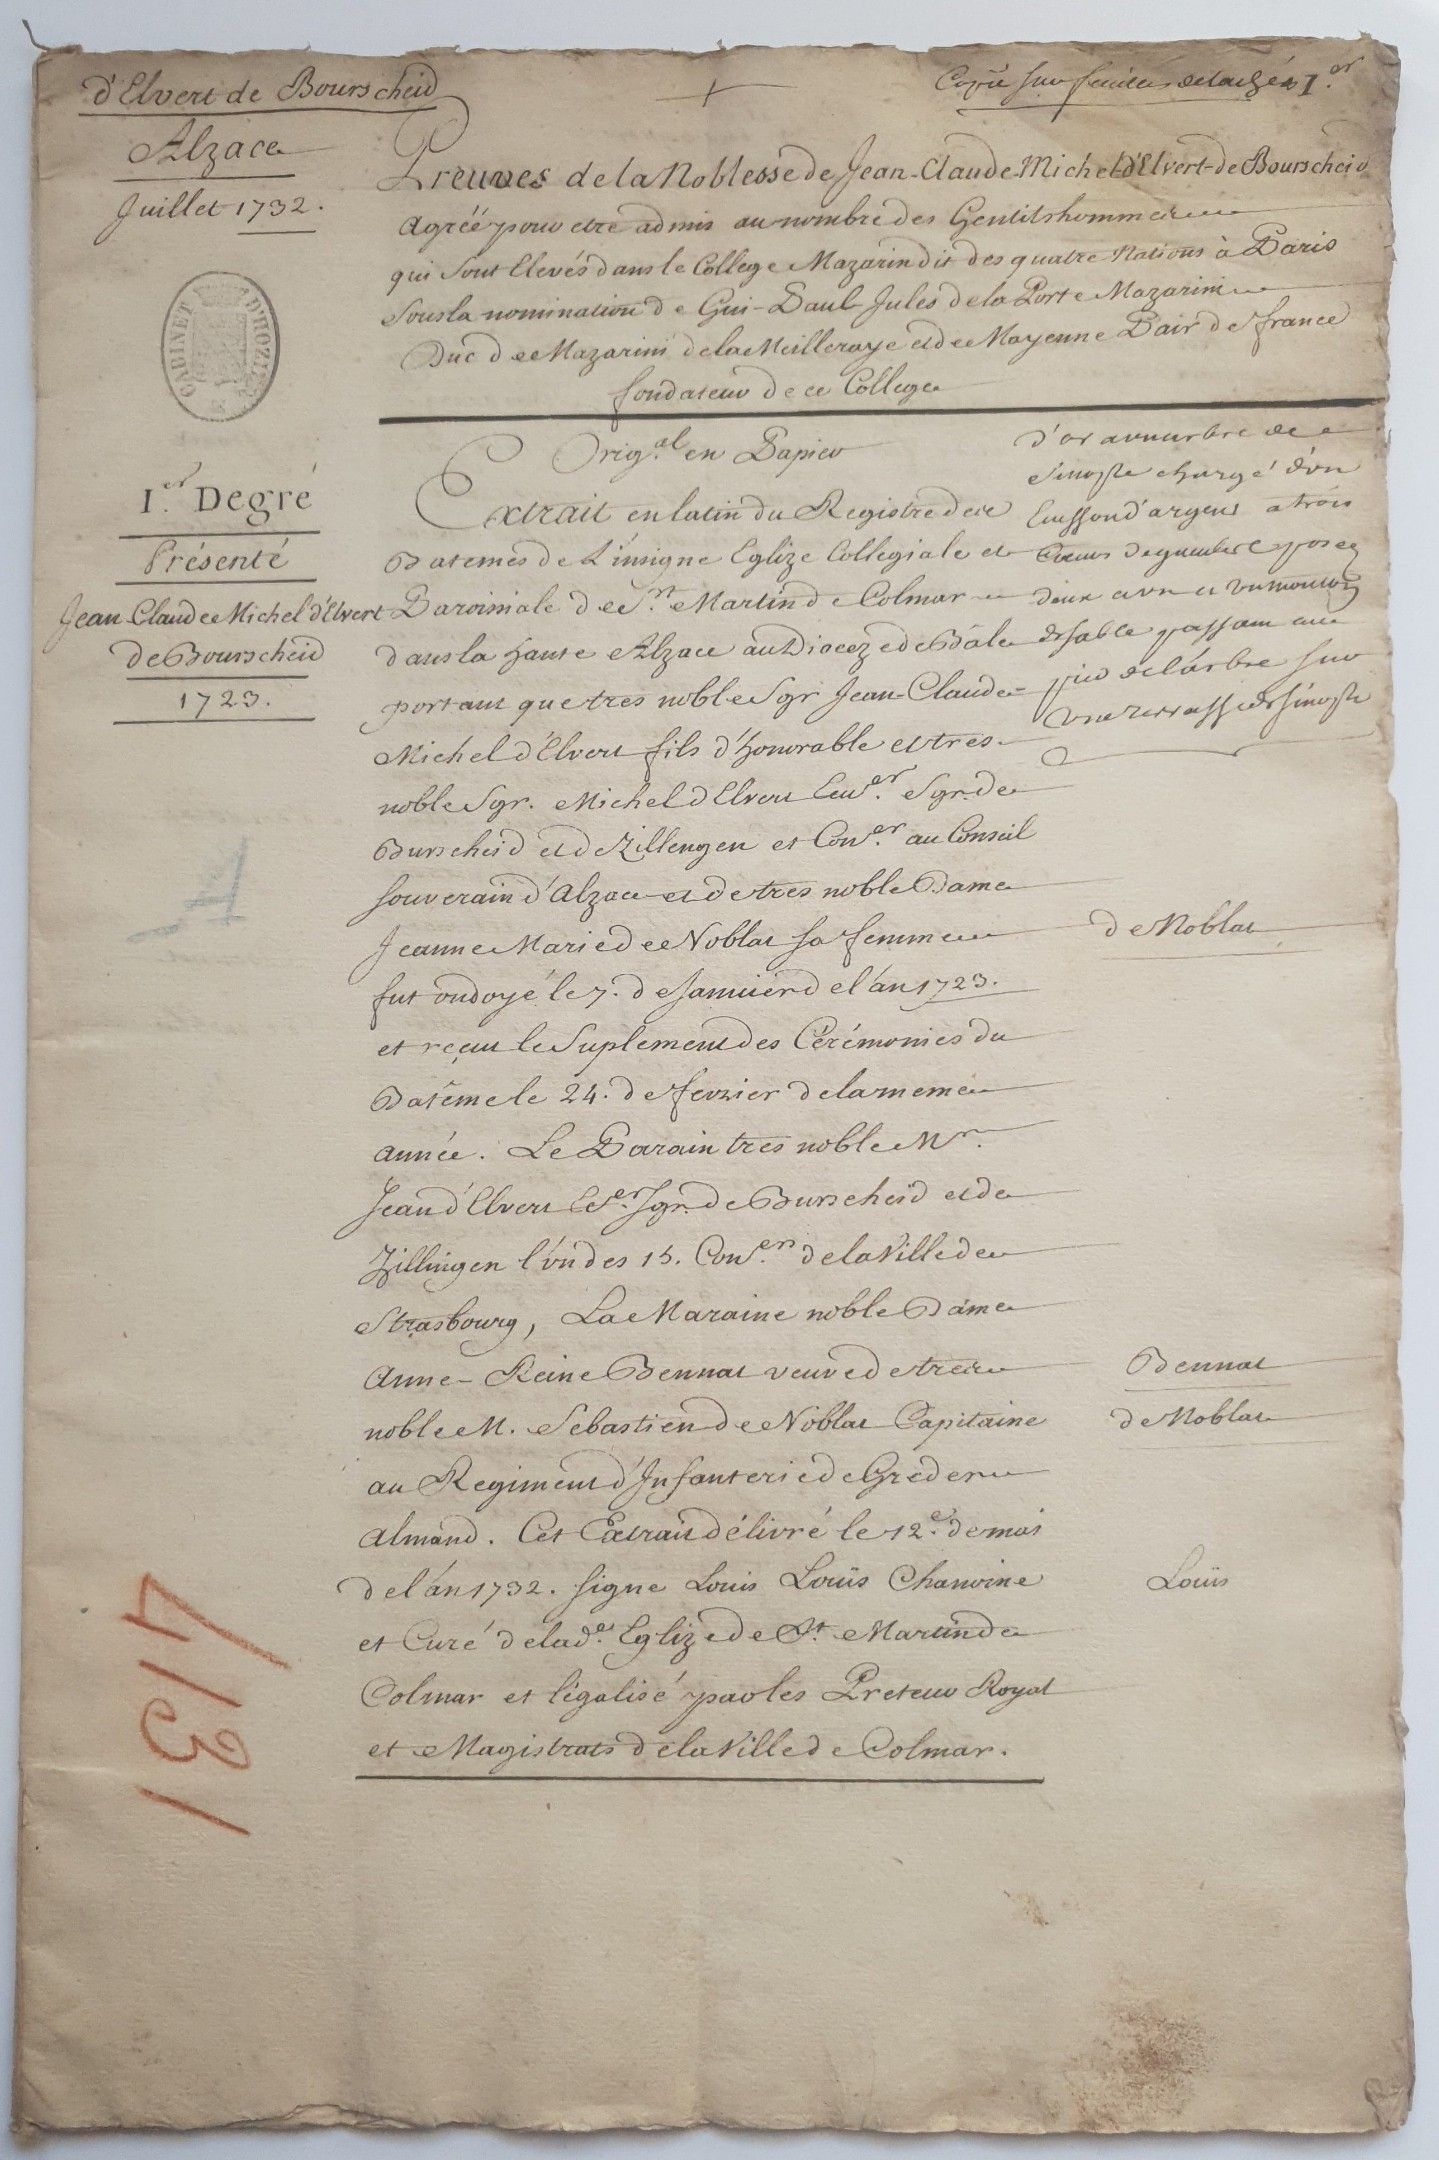 d'Elvert de Bourscheid
Alzace
Juillet 1732.
Copié sur feuilles détachées I.er
Preuves de la Noblesse de Jean-Claude-Michel d'Elvert-de Bourscheid
Agréé pour etre admis au nombre des Gentilshommes
qui sont Elevés dans le College Mazarin dit des quatre Nations à Paris
Sous la nomination de Gui-Paul Jules de la Porte Mazarini
Duc de Mazarini de la Meilleraye et de Mayenne Pair de france
fondateur de ce College
CABINET D'HOZIER
I.er Degré
Présenté
Jean Claude Michel d'Elvert
de Bourscheid
1723.
Orig.al en Papier
Extrait en latin du Registre des
Batemes de L'insigne Eglize Collegiale et
Paroissiale de St. Martin de Colmar
dans la haute Alzace au Dioceze de Bâle
portant que tres noble Sgr Jean-Claude-
Michel d'Elvert fils d'honorable et tres
noble Sgr. Michel d'Elvert Ecu.er Sgr. de
Burscheid et de Zillengen et Con.er au Conseil
souverain d'Alzace et de tres noble Dame
Jeanne Marie de Noblat sa femme
fut ondoyé le 7. de Janvier de l'an 1723.
et reçut le Suplement des Cérémonies du
Batême le 24. de fevrier de la meme
année. Le Parain tres noble Mr.
Jean d'Elvert Ec.er Sgr. de Burscheid et de
Zillingen l'un des 15. Con.ers de la Ville de
Strasbourg, La Maraine noble Dame
Anne-Reine Bennat veuve de tres
noble M. Sebastien de Noblat Capitaine
au Regiment d'Infanterie de Greder
Almand. Cet Extrait délivré le 12e. de mai
de l'an 1732. signé Louis Loüis Chanoine
et Curé de lad.e Eglize de St. Martin de
Colmar et légalisé par les Preteur Royal
et Magistrats de la Ville de Colmar.
d'or a un arbre de
sinople chargé d'un
Ecusson d'argent a trois
Cœurs de gueules posez
deux et un et un mouton
de sable passant au
pied de l'arbre sur
une terrasse de sinople
de Noblat
Bennat
de Noblat
Loüis